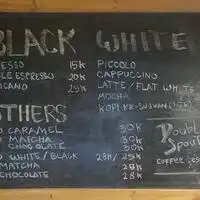 BLACK
ESSO 15K
LE ESPRESSO 20K
ICANO 25K
WHITE
PICCOLO
CAPPUCCINO
LATTE / FLAT WHITE
MOCHA
KOPI
OTHERS
CARAMEL 30K
MATCHA 30K
CHOCOLATE 30K
WHITE / BLACK 28K/25K
MATCHA 28K
CHOCOLATE 28K
Doubl
Spou
COFFEE